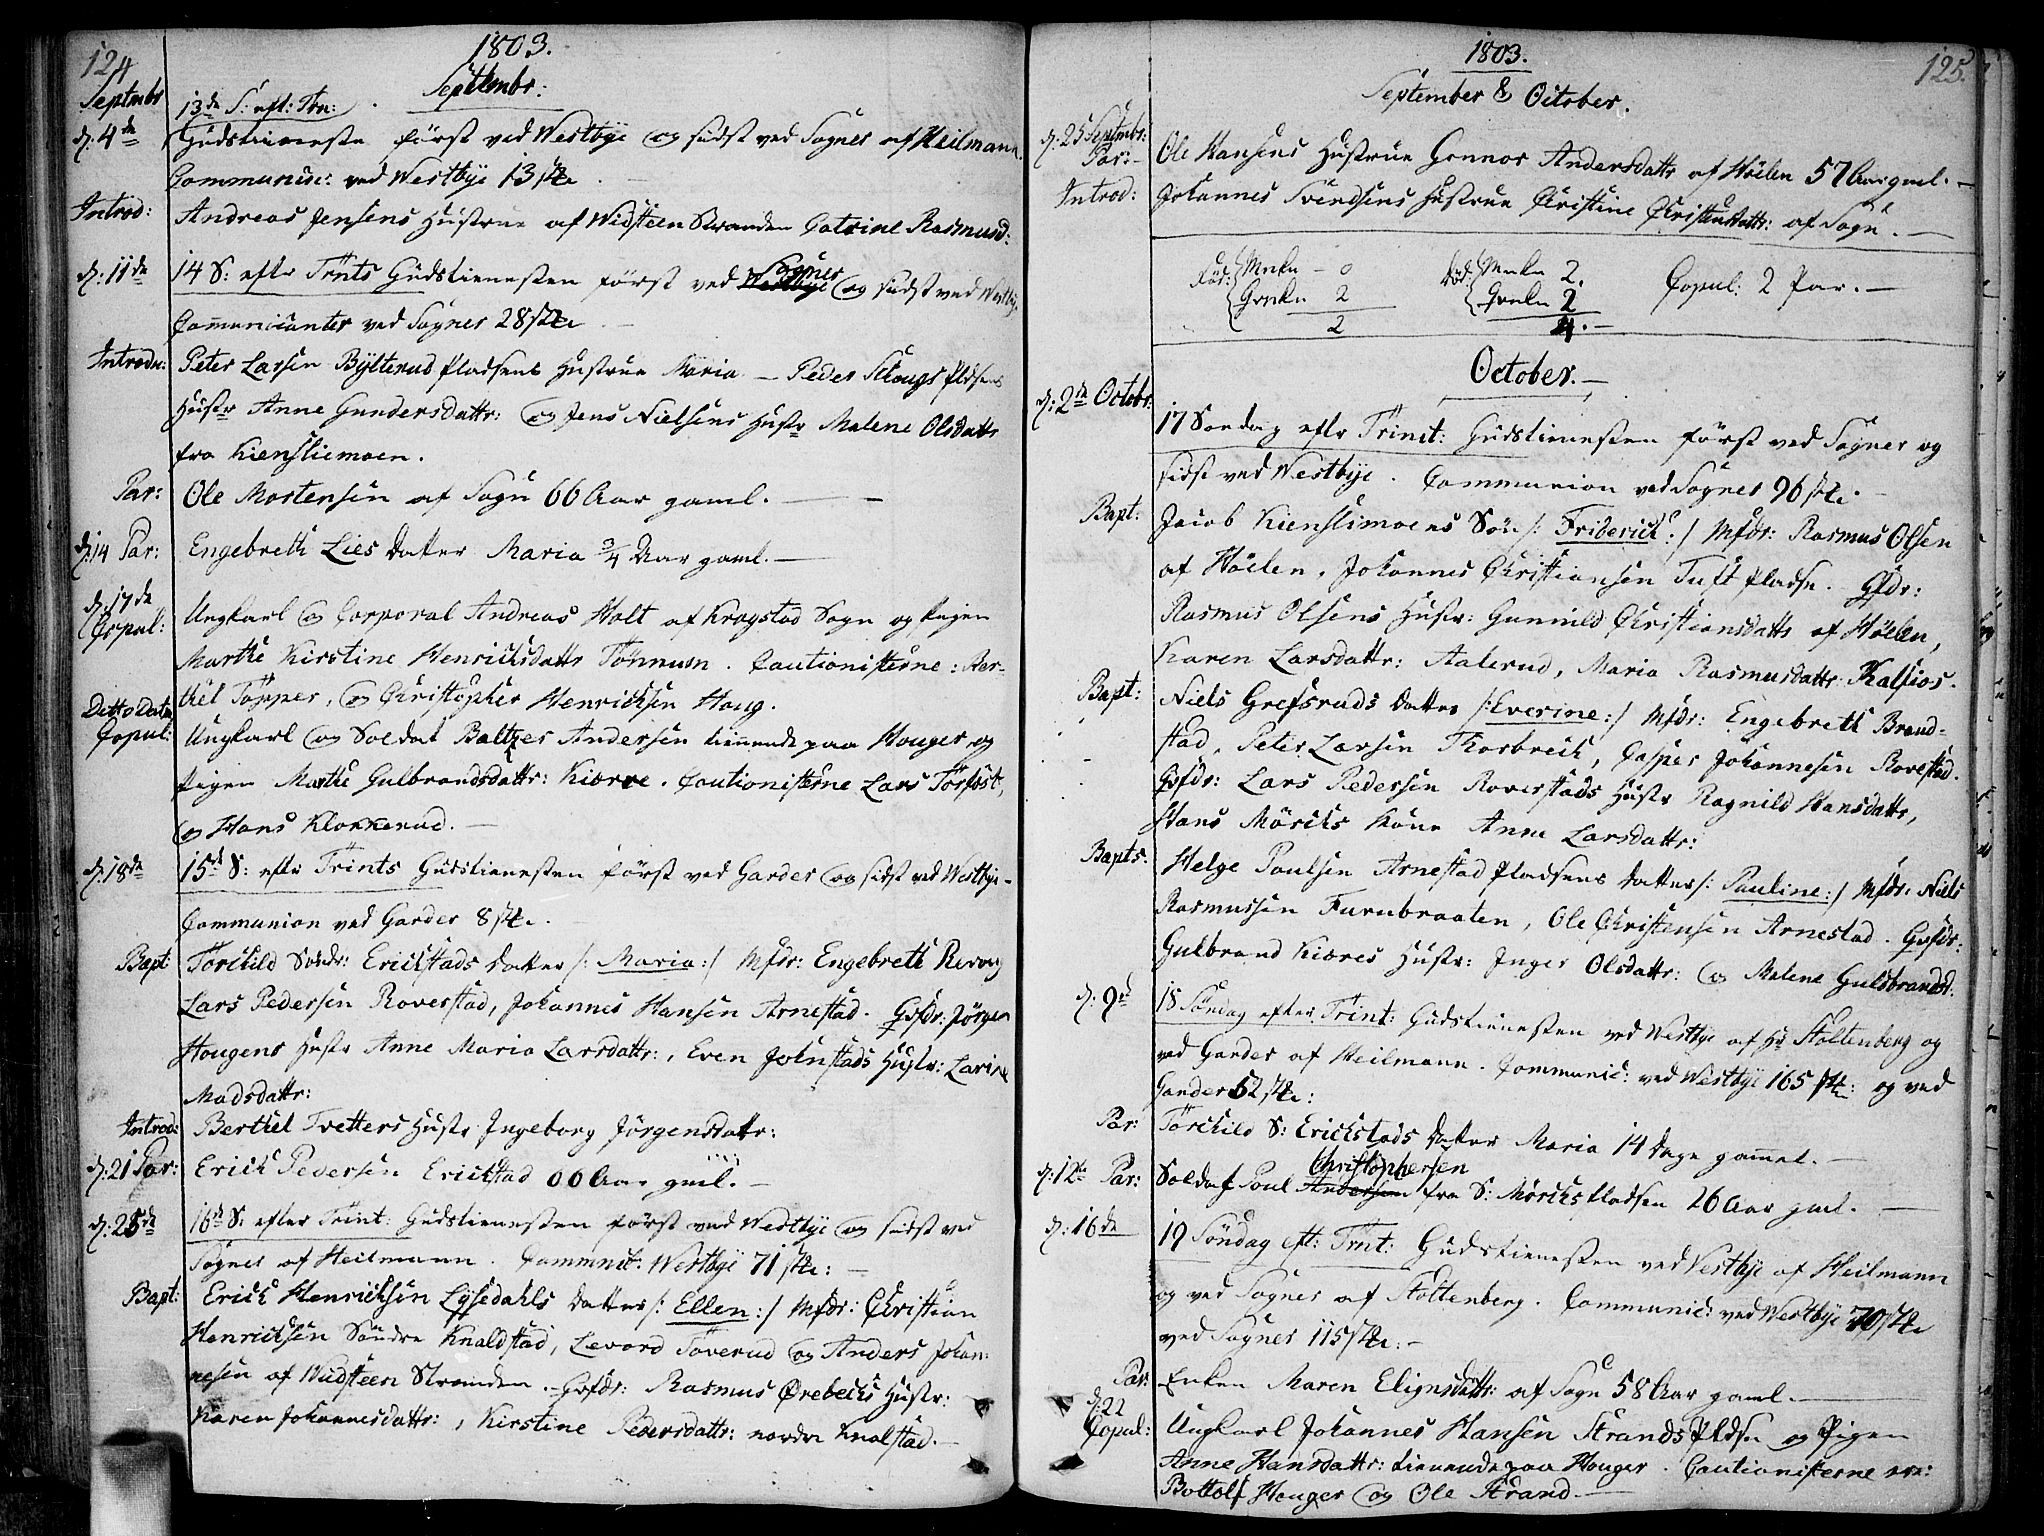 124
1803.
Septembr:
Septembr
13de S: eft: Trn:
d: 4de
Gudstienesten først ved Westbye og sidst ved Sogner af Heilmann.
Communic: ved Westbye 13 stkr
Introd:
Andreas Jensens Hustrue af Widsteen Stranden Catrine Rasmusd:
d: 11de
14 S: eftr Trnts Gudstienesten først ved Sogner og sidst ved Westbÿe
Communicanter ved Sogner 28 stkr
Introdu:
Peter Larsen Bÿlterud Pladsens Hustrue Maria – Peder Skougs Pldsens
Hustr Anne Gundersdattr: og Jens Nielsens Hustr Malene Olsdattr
fra Kiensliemoen.
Par:
Ole Mortensen af Sogn 66 Aar gaml.
d: 14 Par:
Engebreth Lies Datter Maria 3/4 Aar gaml.
d: 17de
Copul:
Ungkarl og Corporal Andreas Holt af Kragstad Sogn og Pigen
Marthe Kirstine Henrichsdattr Tönnum. Cautionisterne: Ber-
thel Töpper, og Christopher Henrichsen Houg.
Ditto Datum
Copul:
Ungkarl og Soldat Baltzer Andersen tienende paa Houger og
Pigen Marthe Gulbrandsdattr: Kiærre. Cautionisterne Lars Törfost,
og Hans Klokkerud.
d: 18de
15de S: eftr Trints Gudstienesten først ved Garder og sidst ved Westbÿe
Communion ved Garder 8 stkr.
Bapt
Torchild Söndr: Erichstads Datter /: Maria :/ Mfdr: Engebreth Revoug
Lars Pedersen Roverstad, Johannes Hansen Arnestad. Gvfdr: Jörgen
Hougens Hustr Anne Maria Larsdattr:, Even Johnstads Hustr: Larine
Madsdattr:
Introd:
Berthel Tvetters Hustr: Ingeborg Jörgensdattr:
d: 21 Par:
Erich Pedersen Erichstad 60 Aar gml.
d: 25de
16de S: efter Trint: Gudstienesten først ved Westbÿe og sidst ved
Sogner af Heilmann. Communic: Westbÿe 71 stkr:
Bapt:
Erich Henrichsen Lÿsedahls Datter /: Ellen :/ Mfdr: Christian
Henrichsen Söndre Knaldstad, Levord Toverud og Anders Johan-
nesen af Wiidsteen Stranden. Gvfdr: Rasmus Ørebechs Hustr:
Karen Johannesdattr:, Kirstine Pedersdattr: nordre Knalstad.
125.
1803.
September & October.
d: 25 Septmbr:
Par:
Ole Hansens Hustrue Gonnor Andersdattr af Höelen 57 Aar gml.
Introd:
Johannes Svendsens Hustrue Christine Christensdattr: af Sogn.
Föd: Mnkn – 0
Qvnkn 2
2
Död: Mnkn 2.
Qvnkn 2
4.
Copul: 2 Par.
October.
d: 2de Octobr:
17 Sondag eftr Trinit: Gudstienesten först ved Sogner og
sidst ved Westbÿe. Communion ved Sogner 96 stkr.
Bapt:
Jacob Kienslimoens Sön /: Friderich :/ Mfdr: Rasmus Olsen
af Höelen, Johannes Christiansen Tuft Pladsn. Qfdr:
Rasmus Olsens Hustr: Gunnild Christiansdattr af Höelen,
Karen Larsdattr: Aalerud, Maria Rasmusdattr: Kalsios.
Bapt:
Niels Grefsruds Datter /: Everine :/ Mfdr: Engebreth Brand-
stad, Peter Larsen Thorbrech, Casper Johannesen Rovestad.
Qvfdr: Lars Pedersen Roverstads Hustr Ragnild Hansdattr,
Hans Mörichs Kone Anne Larsdattr:
Bapts:
Helge Paulsen Arnestad Pladsens Datter /: Pauline :/ Mfdr: Niels
Rasmussen Furubraaten, Ole Christensen Arnestad. Gvfdr:
Gulbrand Kiæres Hustr: Inger Olsdattr: og Malene Guldbrandsd:
d: 9de
18 Söndag efter Trint: Gudstienesten ved Westbÿe af Hr Stoltenberg og
ved Garder af Heilmann. Communic: ved Westbÿe 165 stkr: og ved
Garder 52 stkr:
Par:
Torchild S: Erichstads Datter Maria 14 Dage gammel.
d: 12te Par:
Christophersen
Soldat Poul Andersen fra S: Mörichs Pladsen 26 Aar gml.
d: 16de
19 Söndag eft: Trnt: Gudstienesten ved Vestbÿe af Heilmann
og ved Sogner af Stoltenberg. Communic: ved Westbÿe 70 stkr
ved Sogner 115 stkr.
Par:
Enken Maren Elignsdattr: af Sogn 58 Aar gaml.
d: 22
Copul:
Ungkarl Johannes Hansen Strands Pldsn og Pigen
Anne Hansdattr: tienende paa Houger. Cautionisterne ere:
Bottolf Houger og Ole Strand.